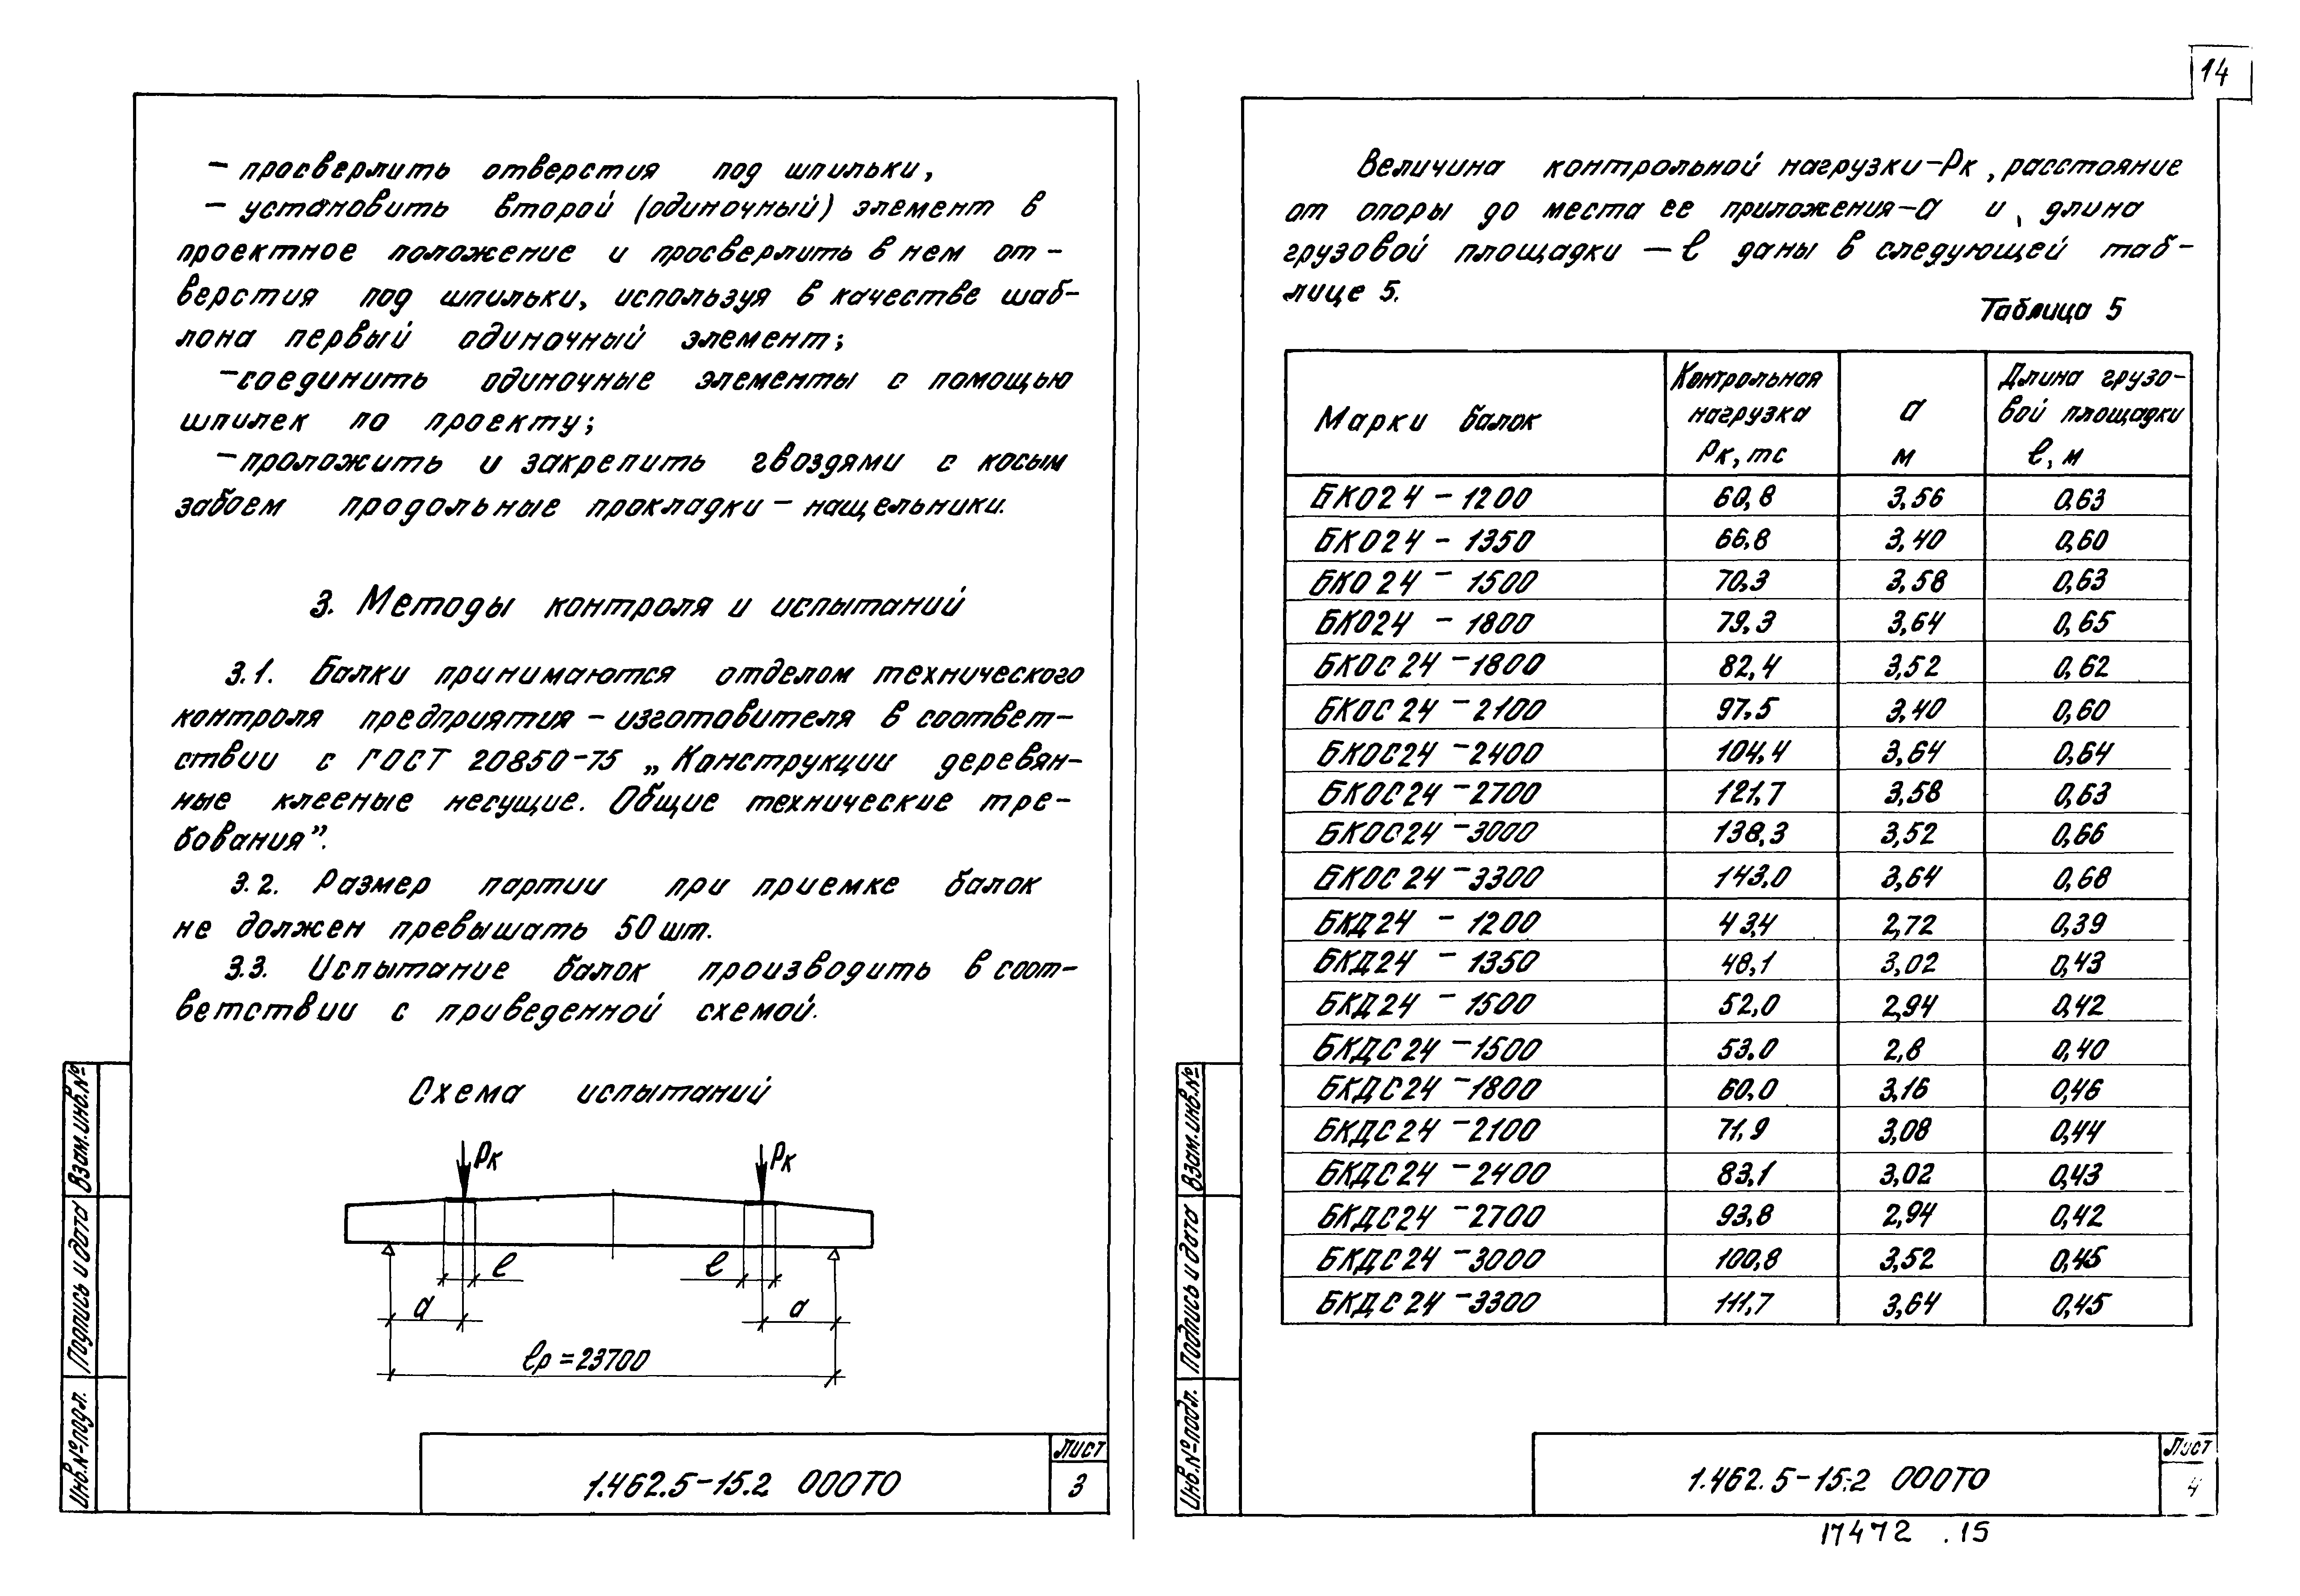 – просверлить отверстия под шпильки,
– установить второй (одиночный) элемент в
проектное положение и просверлить в нем от-
верстия под шпильки, используя в качестве шаб-
лона первый одиночный элемент;
– соединить одиночные элементы с помощью
шпилек по проекту;
– проложить и закрепить гвоздями с косым
забоем продольные прокладки – нащельники.
3. Методы контроля и испытаний
3.1. Балки принимаются отделом технического
контроля предприятия – изготовителя в соответ-
ствии с ГОСТ 20850-75 „Конструкции деревян-
ные клееные несущие. Общие технические тре-
бования”.
3.2. Размер партии при приемке балок
не должен превышать 50 шт.
3.3. Испытание балок производить в соот-
ветствии с приведенной схемой.
Схема испытаний
Рк Рк
ℓ ℓ
а а
ℓр = 23700
Взам.инв.№
Подпись и дата
Инв.№ подл.
1.462.5-15.2 000ТО
Лист
3
14
Величина контрольной нагрузки – Рк, расстояние
от опоры до места ее приложения – а и, длина
грузовой площадки – ℓ даны в следующей таб-
лице 5.
Таблица 5
Марки балок | Контрольная нагрузка Рк, тс | а м | Длина грузо-вой площадки ℓ, м
БКО24 – 1200 60,8 3,56 0,63
БКО24 – 1350 66,8 3,40 0,60
БКО24 – 1500 70,3 3,58 0,63
БКО24 – 1800 79,3 3,64 0,65
БКОС24 – 1800 82,4 3,52 0,62
БКОС24 – 2100 97,5 3,40 0,60
БКОС24 – 2400 104,4 3,64 0,64
БКОС24 – 2700 121,7 3,58 0,63
БКОС24 – 3000 138,3 3,52 0,66
БКОС24 – 3300 143,0 3,64 0,68
БКД24 – 1200 43,4 2,72 0,39
БКД24 – 1350 48,1 3,02 0,43
БКД24 – 1500 52,0 2,94 0,42
БКДС24 – 1500 53,0 2,8 0,40
БКДС24 – 1800 60,0 3,16 0,46
БКДС24 – 2100 71,9 3,08 0,44
БКДС24 – 2400 83,1 3,02 0,43
БКДС24 – 2700 93,8 2,94 0,42
БКДС24 – 3000 100,8 3,52 0,45
БКДС24 – 3300 111,7 3,64 0,45
Взам.инв.№
Подпись и дата
Инв.№ подл.
1.462.5-15.2 000ТО
Лист
4
17472 .15